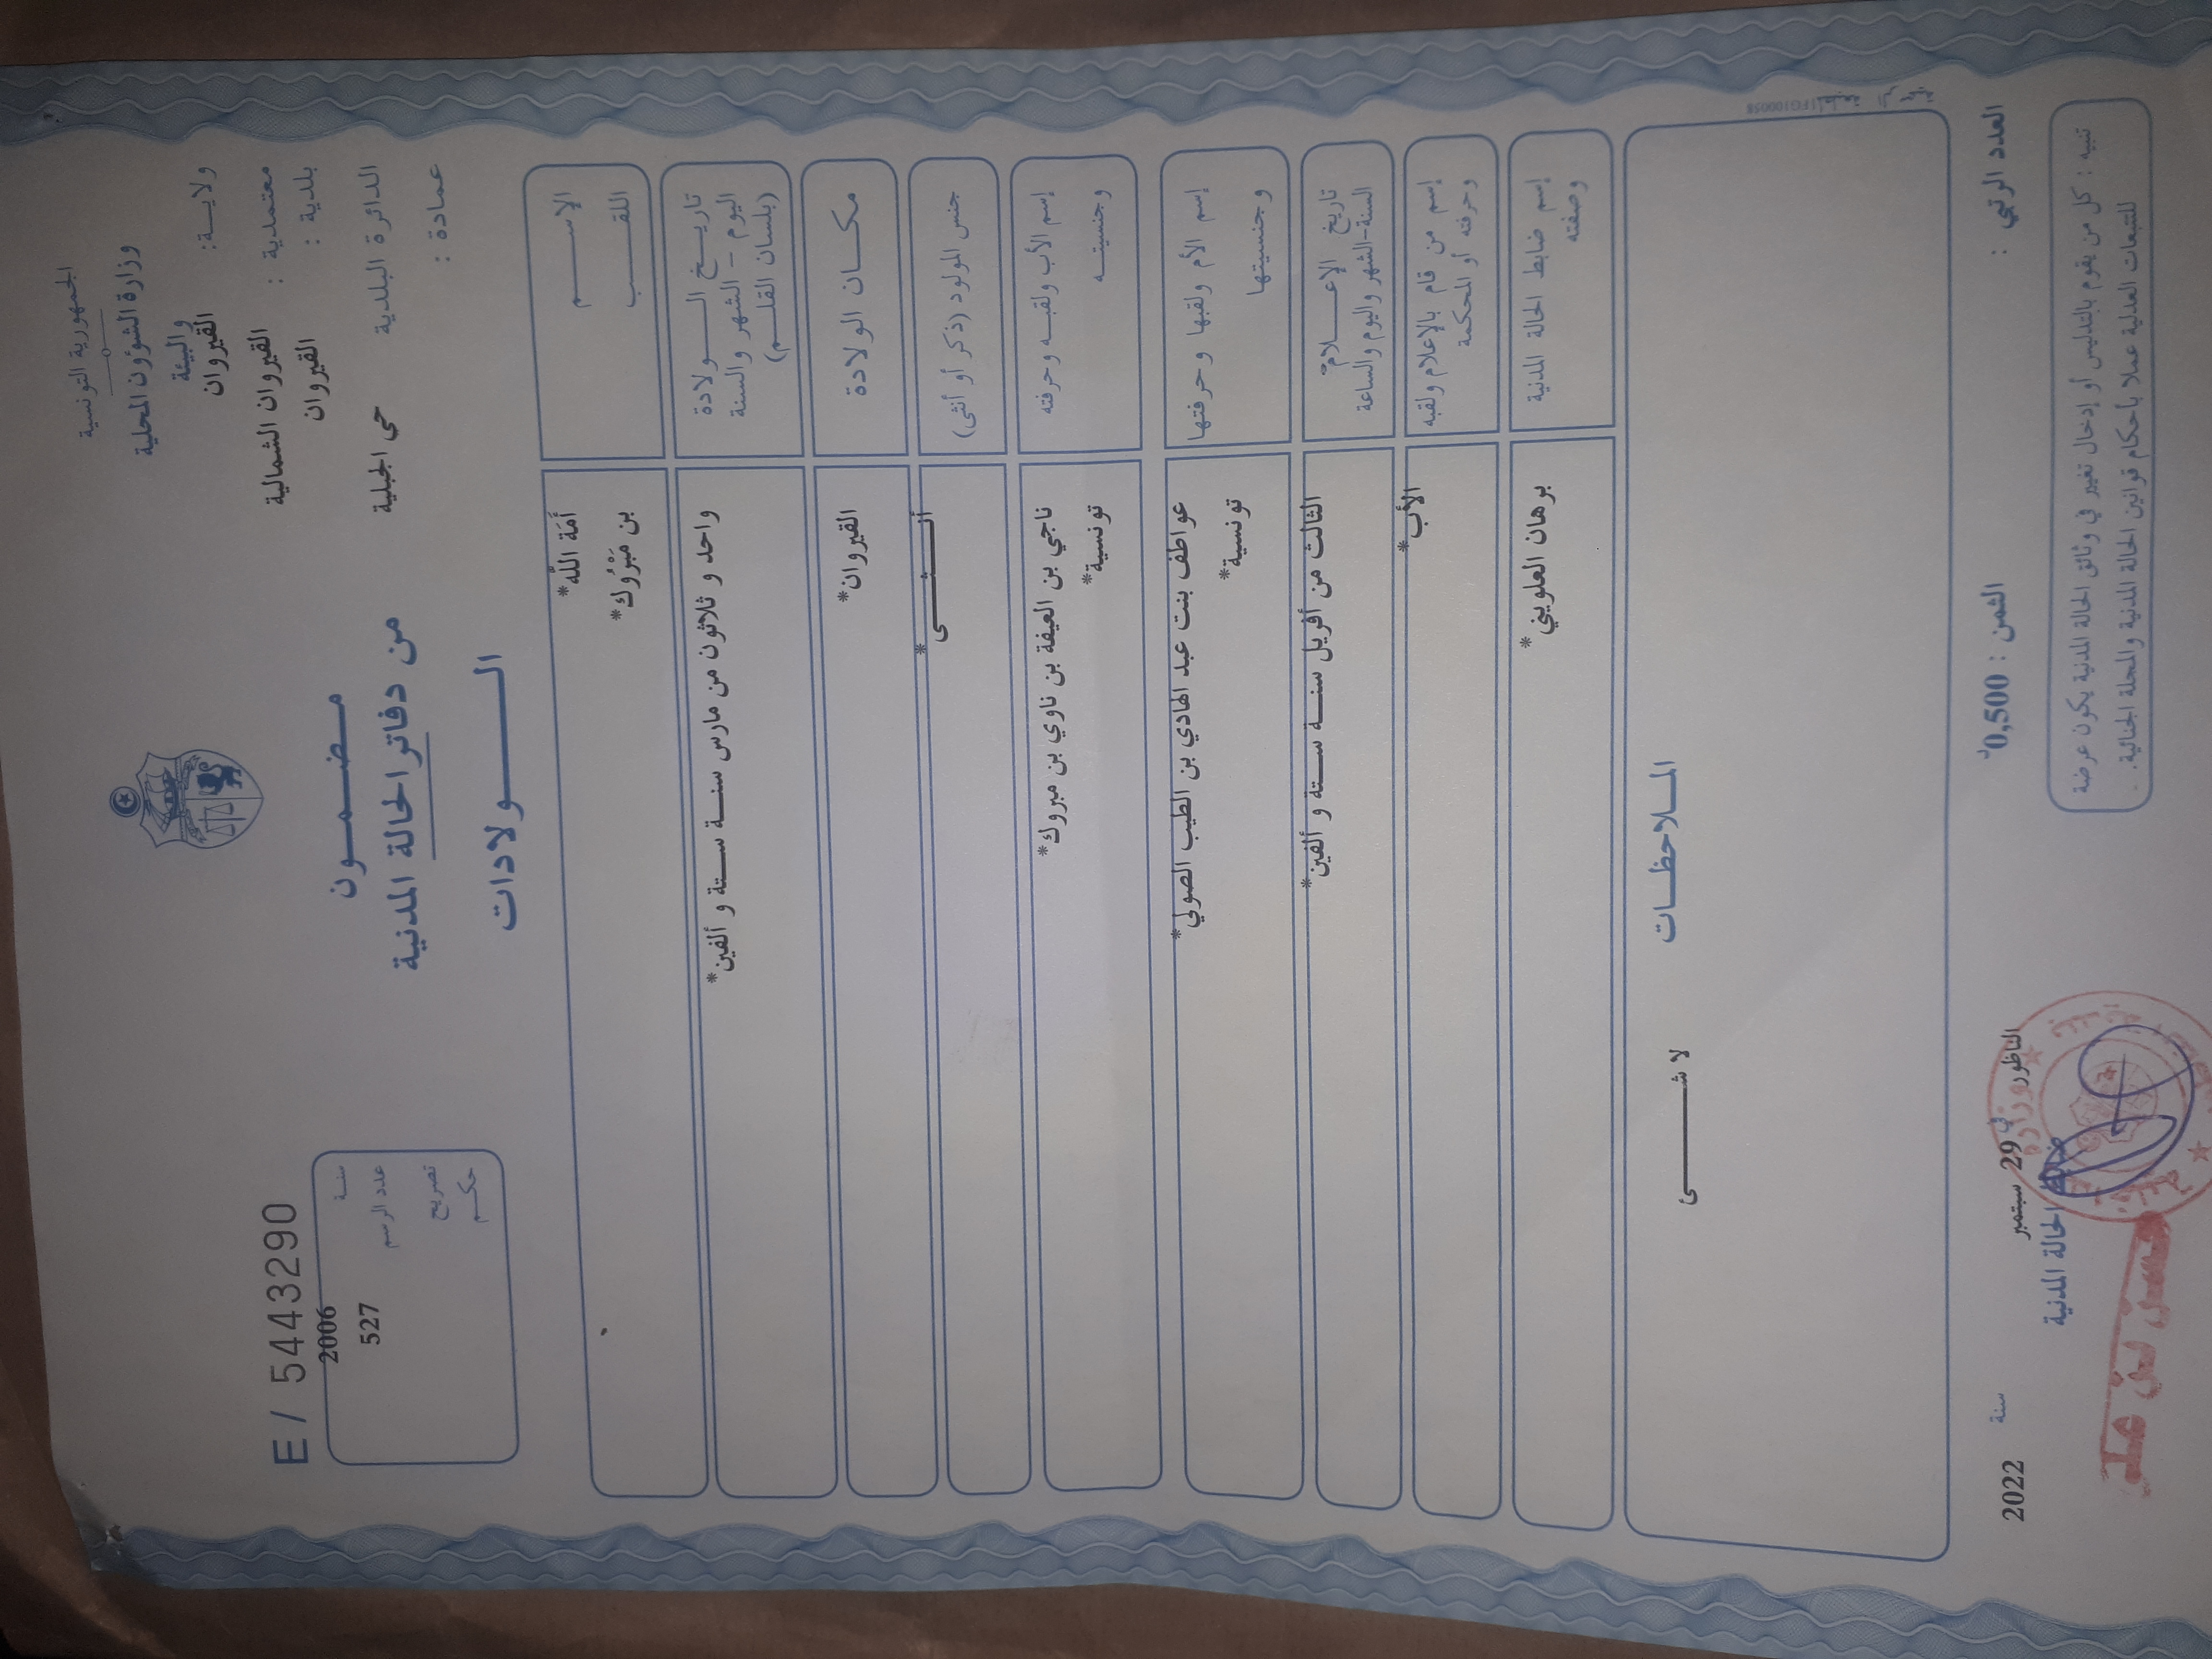 الجمهورية التونسية
وزارة الشؤون المحلية
والبيئة
ولاية: القيروان
معتمدية : القيروان الشمالية
بلدية : القيروان
الدائرة البلدية حي الجبلية
عمادة :
مضمون
من دفاتر الحالة المدنية
الولادات
E / 5443290
سنة 2006
عدد الرسم 527
تصريح
حكم
الإسم أَمَة الله*
اللقب بن مَبْرُوك*
تاريخ الولادة واحد و ثلاثون من مارس سنة ستة و ألفين*
اليوم - الشهر والسنة
(بلسان القلم)
مكان الولادة القيروان*
جنس المولود (ذكر أو أنثى) أنثى*
إسم الأب ولقبه وحرفته ناجي بن العيفة بن ناوي بن مبروك*
وجنسيته تونسية*
إسم الأم ولقبها وحرفتها عواطف بنت عبد الهادي بن الطيب الصولي*
وجنسيتها تونسية*
تاريخ الإعلام الثالث من أفريل سنة ستة و ألفين*
السنة-الشهر واليوم والساعة
إسم من قام بالإعلام ولقبه الأب*
وحرفته أو المحكمة
إسم ضابط الحالة المدنية برهان العلويني*
وصفته
الملاحظات
لا شئ
العدد الرتبي :
الثمن : 0,500د
الناظور في 29 سبتمبر سنة 2022
ضابط الحالة المدنية
تنبيه : كل من يقوم بالتدليس أو إدخال تغيير في وثائق الحالة المدنية يكون عرضة
للتتبعات العدلية عملا بأحكام قوانين الحالة المدنية والمجلة الجنائية.